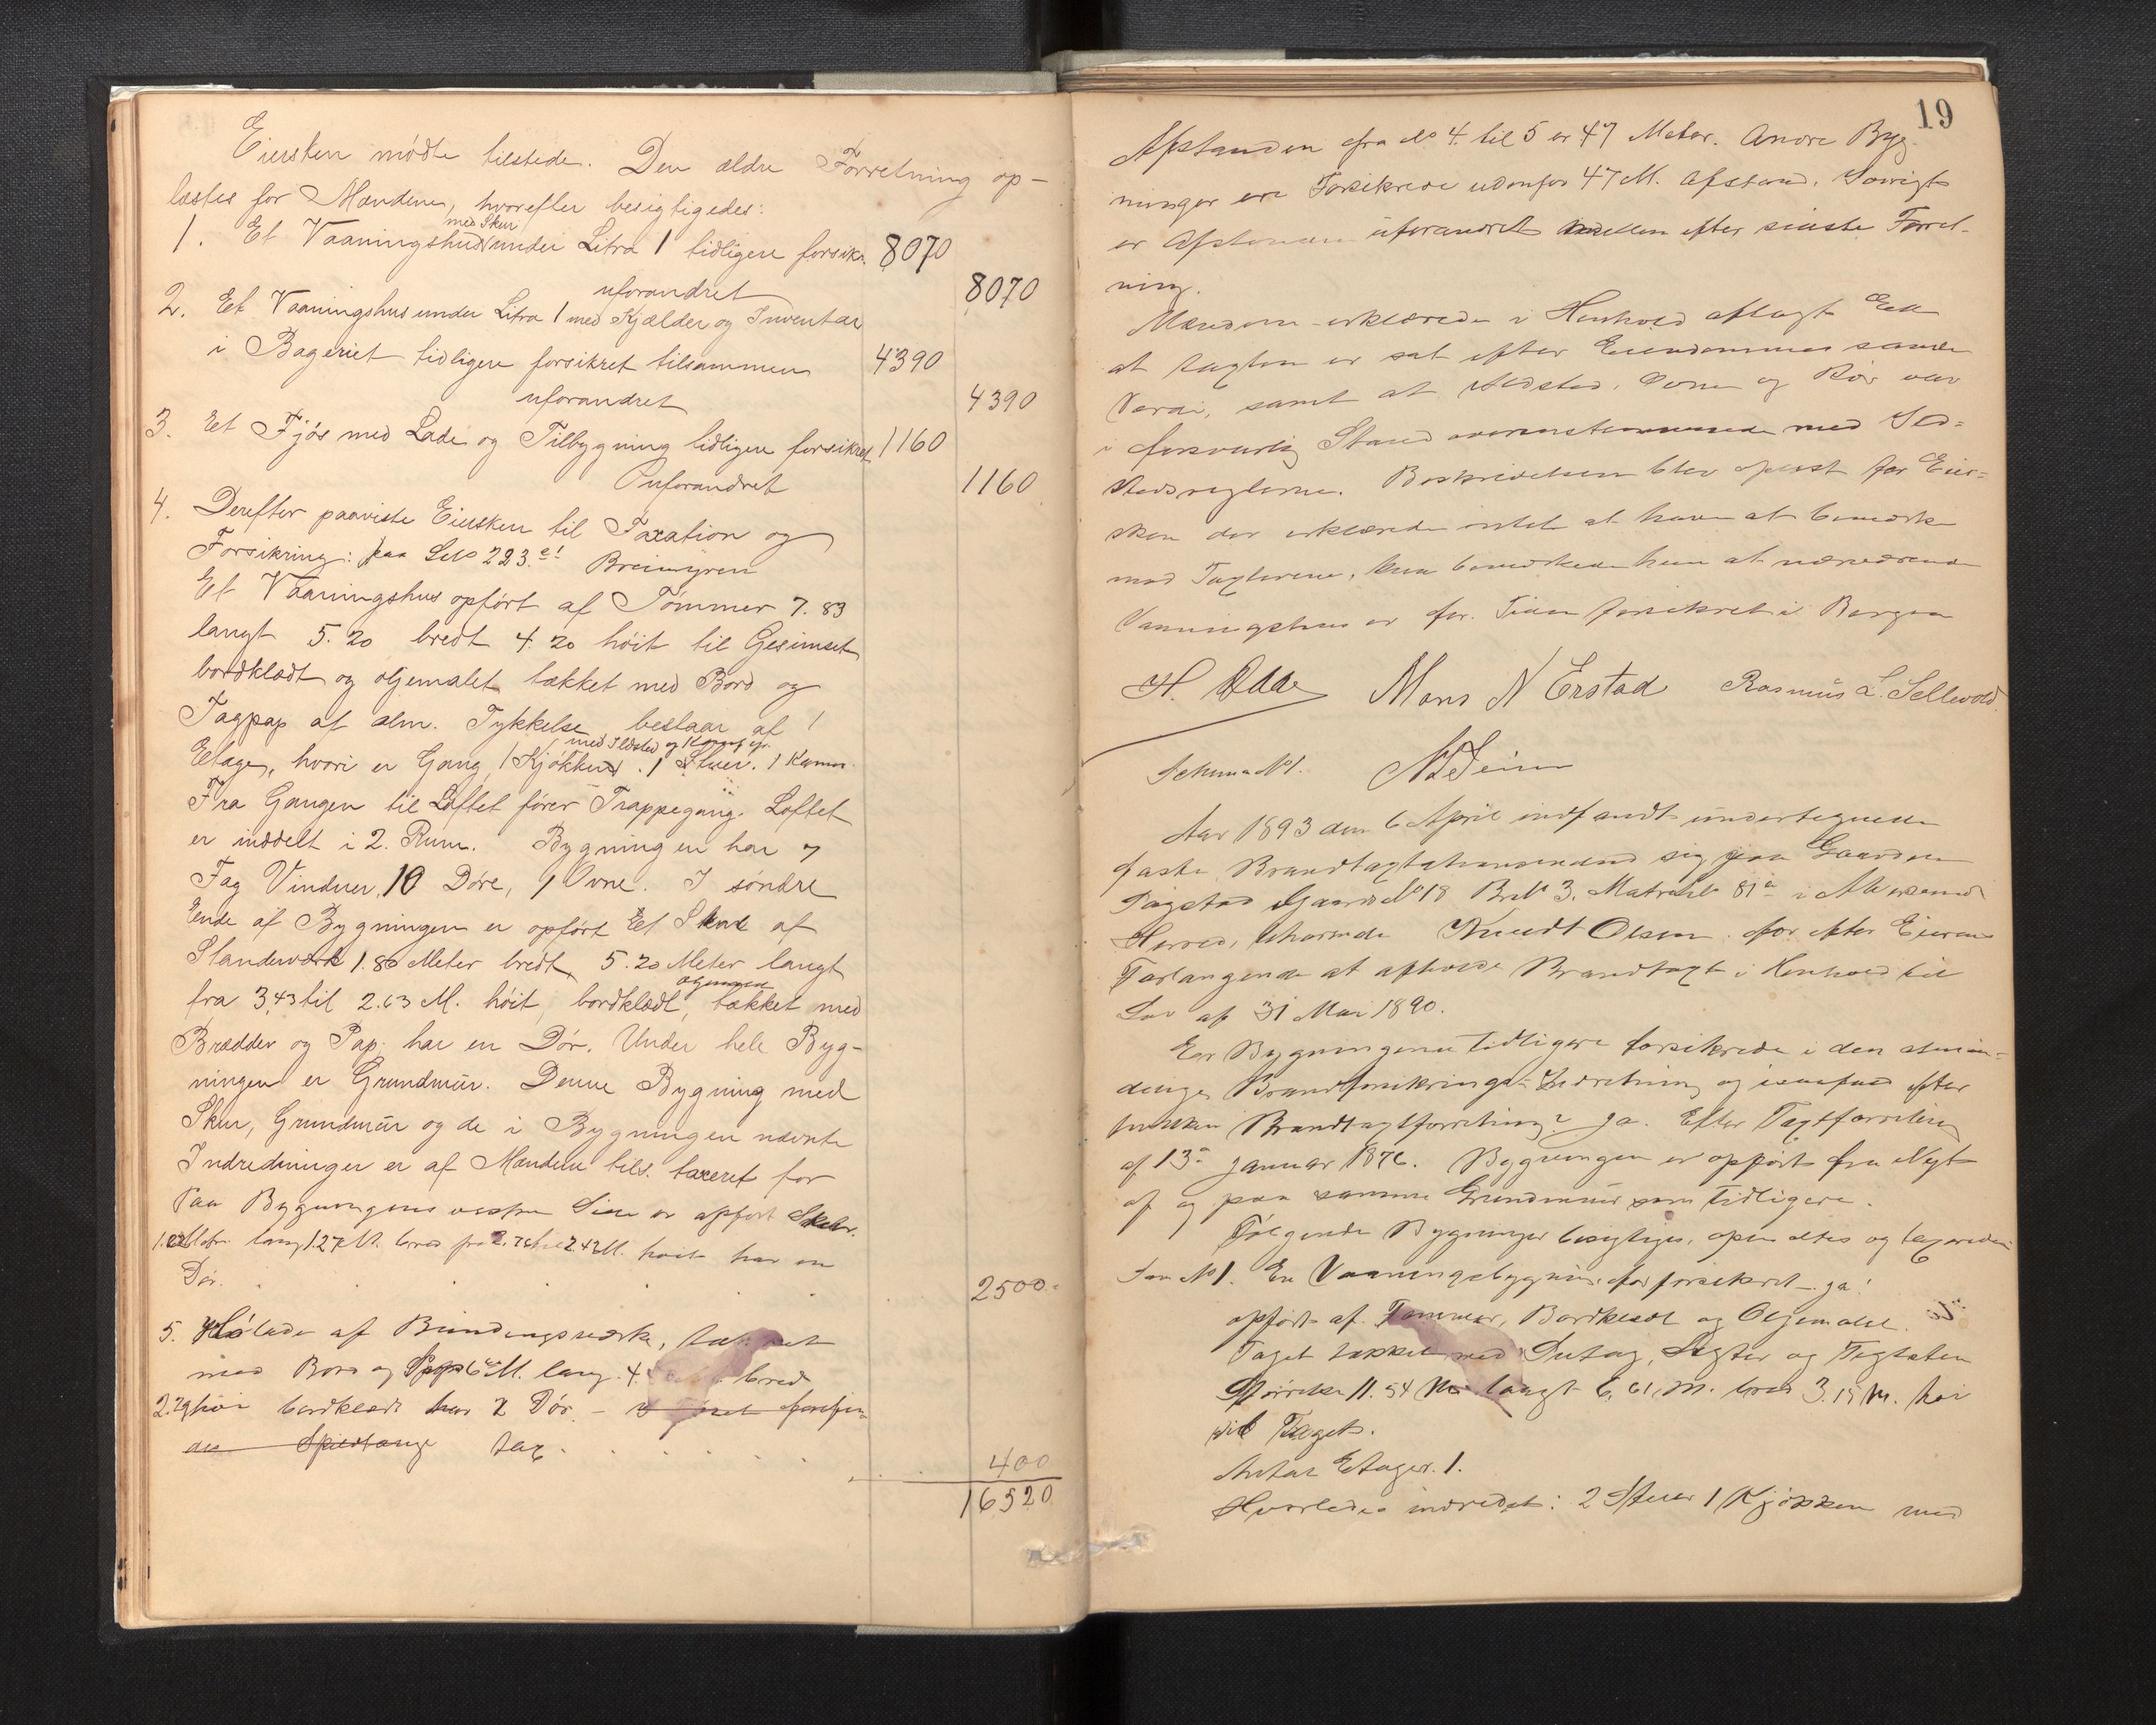 Eiersken mødte tilstede. Den ældre Forretning op-
læstes for Mændene, hvorefter besigtigedes:
1. Et Vaaningshus med Skur under Litra 1 tidligere forsikr. 8070
uforandret 8070
2. Et Vaaningshus under Litra 1 med Kjælder og Inventar
i Bageriet tidligere forsikret tilsammen 4390
uforandret 4390
3. Et Fjøs med Lade og Tilbygning tidligere forsikret 1160
uforandret 1160
4. Derefter paaviste Eiersken til Taxation og
Forsikring: paa Lno 223 Breimyren
Et Vaaningshus opført af Tømmer 7.83
langt 5.20 bredt 4.20 høit til Gesimset
bordklædt og oljemalet tækket med Bord og
Tagpap af alm. Tykkelse bestaar af 1
Etage, hvori er Gang, 1 Kjøkken med Ildsted og Komfyr. 1 Stuer. 1 Kamr.
Fra Gangen til Loftet fører Trappegang. Loftet
er inddelt i 2. Rum. Bygningen har 7
Fag Vinduer, 10 Døre, 1 Ovne. I søndre
Ende af Bygningen er opført Et Skur af
Standeværk 1.80 Meter bredt, 5.20 Meter langt
fra 3.43 til 2.63 M. høit, bordklædt, tækket med
Brædder og Pap. har en Dør. Under hele Byg-
ningen er Grundmur. Denne Bygning med
Skur, Grundmur og de i Bygningen nævnte
Indredninger er af Mændene tils. taxeret for
Paa Bygningens vestre Side er opført Skur.
lang 1.27 M. bred fra 2.76 til 2.42 M. høit har en
Dør. 2500.
5. Høladen af Bindingsværk, tækket
med Bord og Pap 6 M. lang. 4. bred
2.29 høi bordklædt har 2 Dør. - forefin-
des tax. 400
16520
19
Afstanden fra No 4 til 5 er 47 Meter. Andre Byg-
ninger ere Forsikrede udenfor 47 M. Afstand. Iøvrigt
er Afstanden uforandret imellem efter sidste Forret-
ning.
Mændene erklærede i Henhold aflagt Eed
at taxten er sat efter Eiendommens sande
Værdi, samt at Ildsted, Ovne og Rør var
i forsvarlig Stand overensstemmende med Ild-
stedsreglerne. Beskrivelsen blev oplæst for Eier-
sken der erklærede intet at have at bemærke
mod Taxterne, kun bemærkede hun at nærværende
Vaaningshus er for Tiden forsikret i Bergen
H. Odde Mons N Erstad Rasmus L. Sellevold.
Schema No 1.
Aar 1893 den 6 April indfandt undertegnede
faste Brandtaxtationsmænd sig paa Gaarden
Gaards No 18 Br No 3. Matr. Lno 81a i
Herred, tilhørende Knudt Olsen for efter Eierens
Forlangende at afholde Brandtaxt i Henhold til
Lov af 31 Mai 1890.
Ere Bygningerne tidligere forsikrede i den almin-
delige Brandforsikrings-Indretning og isaafald efter
hvilken Brandtaxtforretning? Ja. Efter Taxtforretning
af 13de Januar 1876. Bygningen er opført fra Nyt
af og paa samme Grundmuur som tidligere.
Følgende Bygninger besigtiges, opmaaltes og taxeredes
Som No 1. En Vaaningsbygning før forsikret - ja!
opført af Tømmer, Bordklædt og Oljemalet.
Taget tækket med Sutag, Legter og Tegelsten
Størrelse 11.54 M. langt 6,61, M. bred 3.15 M. høi
til Taget.
Antal Etager. 1.
Hvorledes indredet: 2 Stuer 1 Kjøkken med